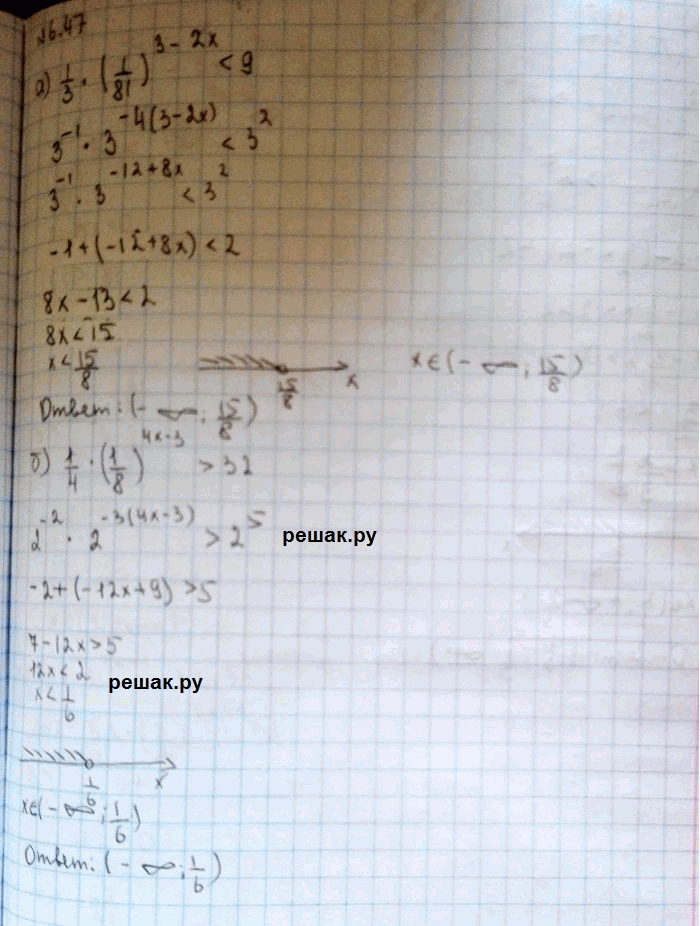 №6.47
а) 1/3 · (1/81)^(3-2x) < 9
3^(-1) · 3^(-4(3-2x)) < 3^2
3^(-1) · 3^(-12+8x) < 3^2
-1+(-12+8x)<2
8x-13<2
8x<15
x<15/8
15/8 x
x∈(-∞; 15/8)
Ответ: (-∞; 15/8)
б) 1/4 · (1/8)^(4x-3) > 32
2^(-2) · 2^(-3(4x-3)) > 2^5
решак.ру
-2+(-12x+9)>5
7-12x>5
12x<2
x<1/6
решак.ру
1/6 x
x∈(-∞; 1/6)
Ответ: (-∞; 1/6)